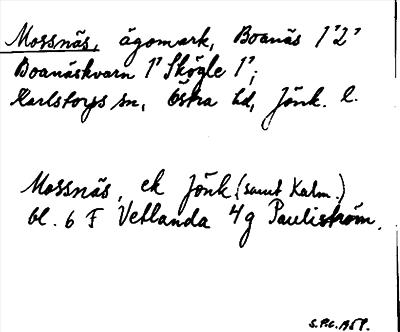 Mossnäs, ägomark, Boanäs 1² 2³
Boanäskvarn 1³ Skögle 1³;
Karlstorps sn, Östra hd, Jönk. l.
Mossnäs, ek Jönk. (samt Kalm.)
bl. 6 F Vetlanda 4g Pauliström.